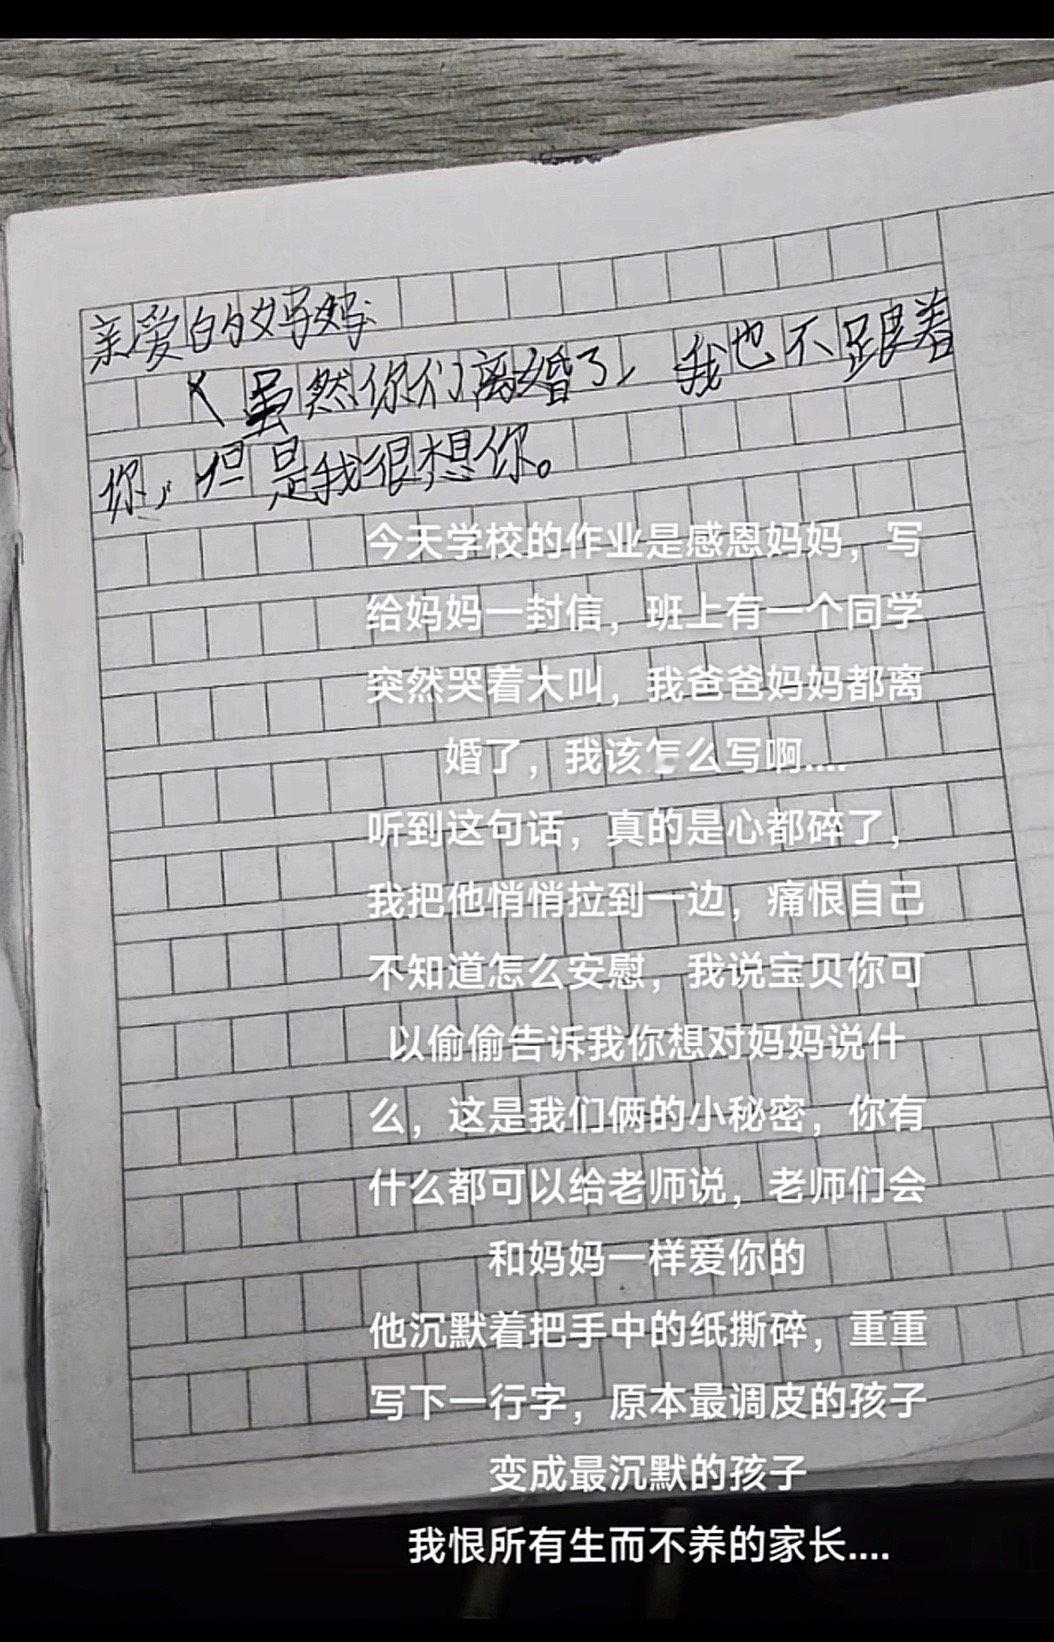 亲爱的妈妈:
虽然你们离婚了，我也不跟着
你，但是我很想你。
今天学校的作业是感恩妈妈，写
给妈妈一封信，班上有一个同学
突然哭着大叫，我爸爸妈妈都离
婚了，我该怎么写啊....
听到这句话，真的是心都碎了，
我把他悄悄拉到一边，痛恨自己
不知道怎么安慰，我说宝贝你可
以偷偷告诉我你想对妈妈说什
么，这是我们俩的小秘密，你有
什么都可以给老师说，老师们会
和妈妈一样爱你的
他沉默着把手中的纸撕碎，重重
写下一行字，原本最调皮的孩子
变成最沉默的孩子
我恨所有生而不养的家长....